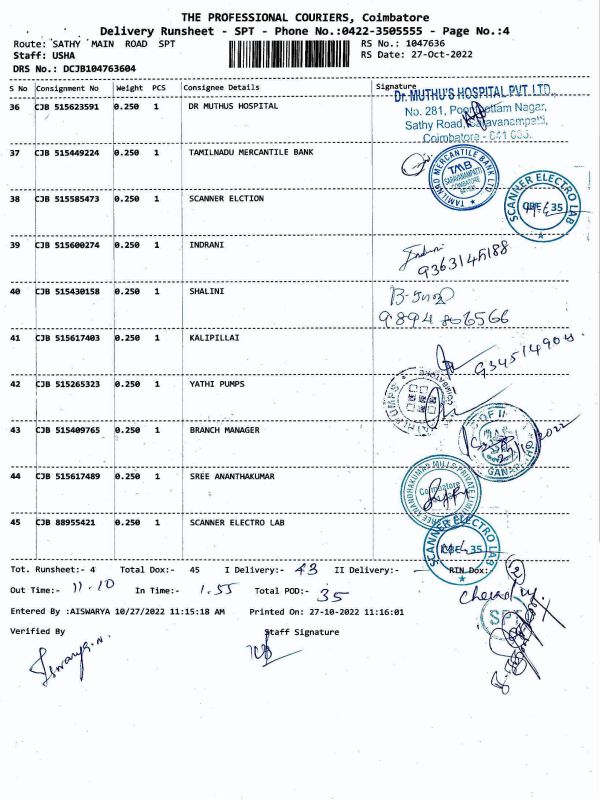 THE PROFESSIONAL COURIERS, Coimbatore
Delivery Runsheet - SPT - Phone No.:0422-3505555 - Page No.:4
Route: SATHY MAIN ROAD SPT RS No.: 1047636
Staff: USHA RS Date: 27-Oct-2022
DRS No.: DCJB104763604
S No Consignment No Weight PCS Consignee Details Signature
36 CJB 515623591 0.250 1 DR MUTHUS HOSPITAL
Dr. MUTHU'S HOSPITAL PVT. LTD.
No. 281, Poompottam Nagar,
Sathy Road, Saravanampatti,
Coimbatore - 641 035.
37 CJB 515449224 0.250 1 TAMILNADU MERCANTILE BANK
TAMILNAD MERCANTILE BANK LTD
TMB
SARAVANAMPATTI
COIMBATORE
38 CJB 515585473 0.250 1 SCANNER ELCTION
SCANNER ELECTRO LAB
CBE 35
39 CJB 515600274 0.250 1 INDRANI
Indrani
9363145188
40 CJB 515430158 0.250 1 SHALINI
9894 806566
41 CJB 515617403 0.250 1 KALIPILLAI
42 CJB 515265323 0.250 1 YATHI PUMPS
43 CJB 515409765 0.250 1 BRANCH MANAGER
44 CJB 515617489 0.250 1 SREE ANANTHAKUMAR
Coimbatore
45 CJB 88955421 0.250 1 SCANNER ELECTRO LAB
SCANNER ELECTRO LAB
CBE 35
Tot. Runsheet:- 4 Total Dox:- 45 I Delivery:- 43 II Delivery:- RTN Dox:-
Out Time:- 11.10 In Time:- 1.55 Total POD:- 35
SPT
Entered By :AISWARYA 10/27/2022 11:15:18 AM Printed On: 27-10-2022 11:16:01
Verified By Staff Signature